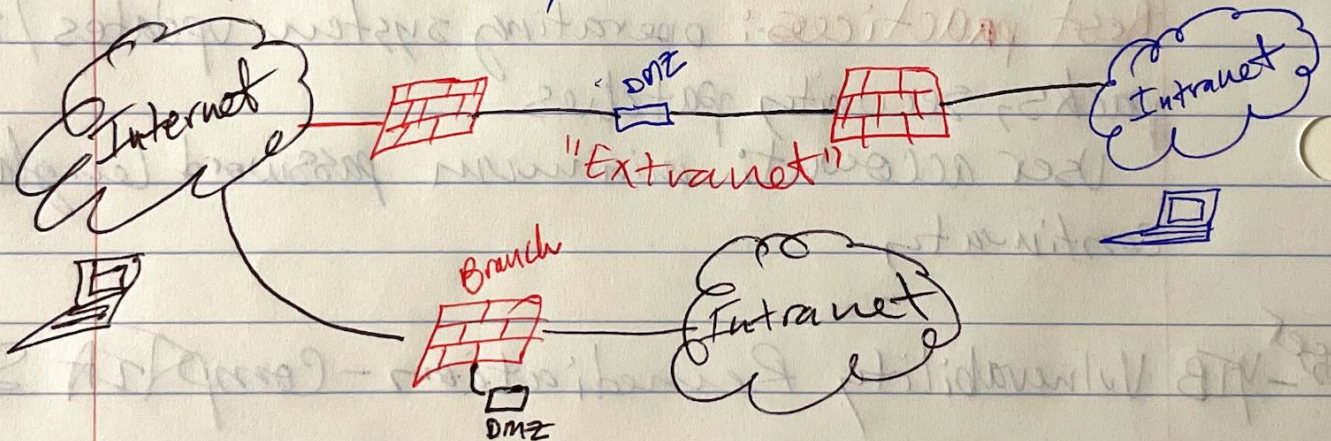 DMZ
Internet
Intranet
"Extranet"
Branch
Intranet
DMZ